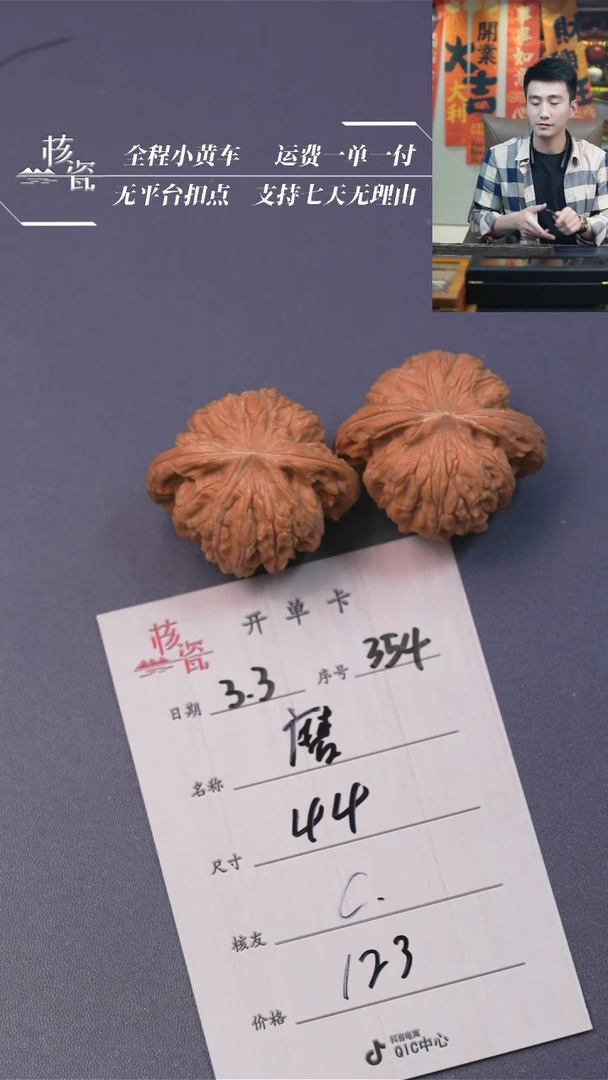 核瓷
全程小黄车 运费一单一付
无平台扣点 支持七天无理由
開業
大吉
大利
事事如意
财
核瓷
开单卡
日期 3.3 序号 354
名称 磨
尺寸 44
核友 C.
价格 123
抖音电商
QIC中心